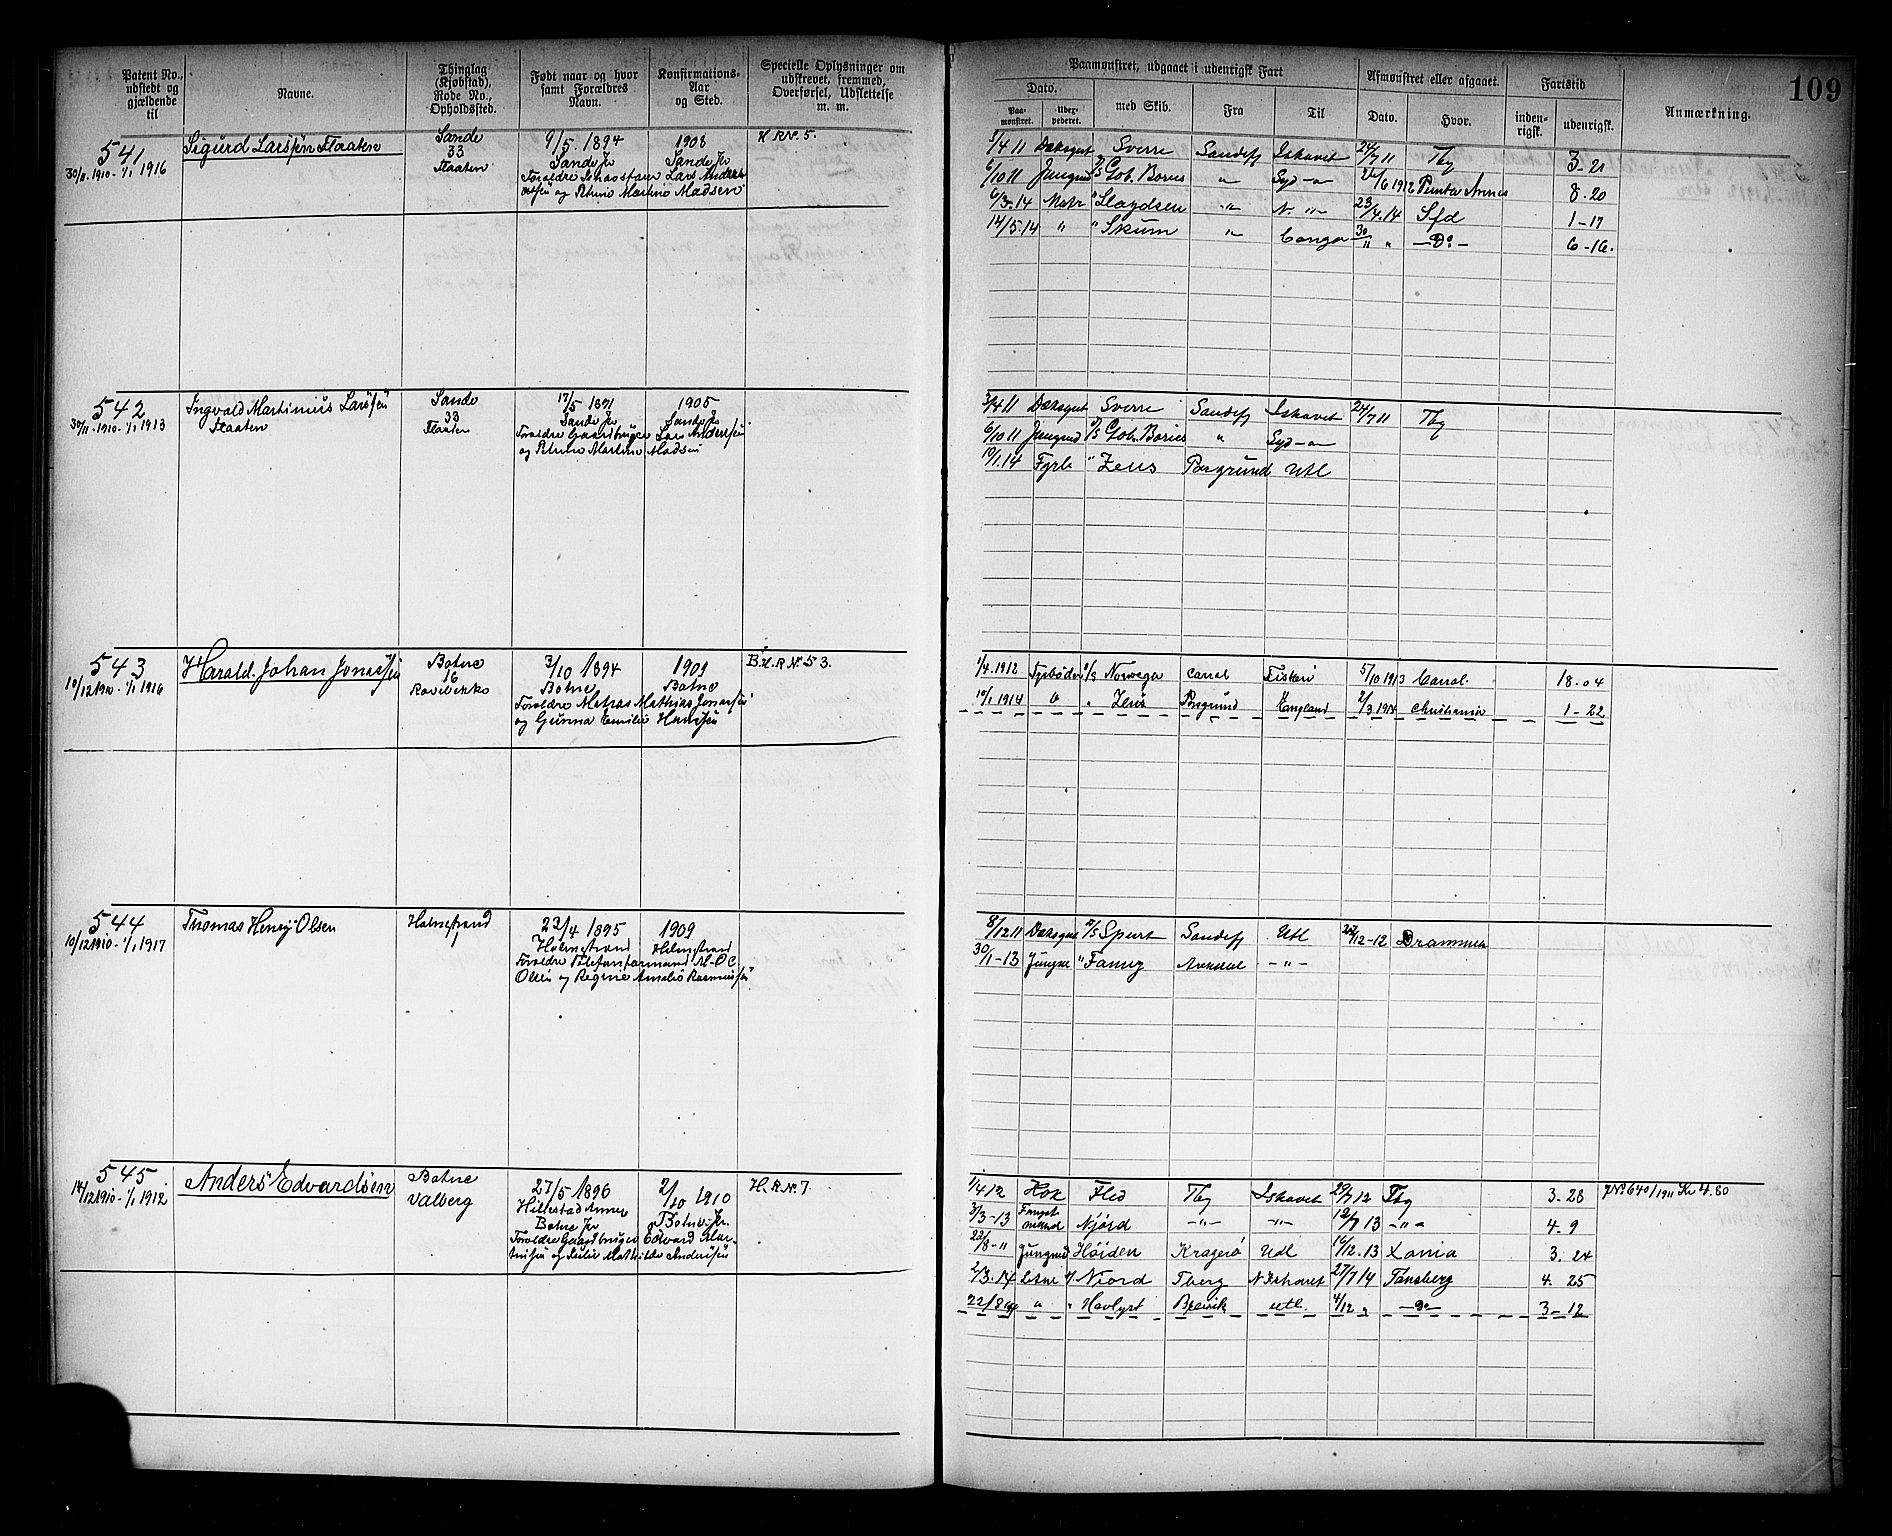 109
Patent No., udstedt og gjældende til
Navne.
Thinglag (Kjøbstad), Rode No., Opholdssted.
Født naar og hvor samt Forældres Navn.
Konfirmations-Aar og Sted.
Specielle Oplysninger om udskrevet, fremmed, Overførsel, Udslettelse m. m.
Paamønstret, udgaaet i udenrigsk Fart
Dato.
Paa-mønstret.
med Skib.
Fra
Til
Afmønstret eller afgaaet.
Dato.
Hvor.
Fartstid
inden-rigsk.
udenrigsk.
Anmærkning.
541
30/11.1910-1/1 1916
Sigurd Larssen Flaaten
Sande
33
Flaaten
9/5. 1894
Sande Jr
1908
Sande Jr
H RN. 5.
og Petrine Martine Madsen
1/4 11 Dæksgut Sverre Sandefj Ishavet 24/7 11 Tbg 3-21
6/10 11 Jungmd Gob. Bories " Syd-" 8-20
6/3.14 Matr " N. "" 23/4.14 Sfd 1-17
14/5.14 " " Skum " Congo 30/11 " -Do- 6-16.
542
30/11.1910-1/1 1913
Ingvald Martinius Larssen
Flaaten
Sande
33
Flaaten
17/5 1891
Sande Jr
1905
Sande Jr
Forældre Gaardbruger Lars Anderssen
og Petrine Martine Madsen
3/4 11 Dæksgut Sverre Sandefj Ishavet 24/7 11 Tbg
6/10 11 Jungmd Gob. Bories " Syd-"
10/1.14 Fyrb " Zeus Porsgrund Utl
543
10/12 1910-1/1 1916
Harald Johan Jonassen
Botne
16
3/10 1894
Botne
1909
Botne
B.H.R.N. 53.
Forældre Matros Mathias Jonassen
og Gunna Emilie Hanssen
1/4.1912 Fyrbøder Norwega 5/10 1913 18.04
10/1 1914 " " Zeus Porsgrund England 2/3 1914 Christiania 1-22
544
10/12 1910-1/1 1917
Thomas Henry Olsen
Holmestrand
22/4 1895
Holmestrand
1909
Holmestrand
Forældre Telefonformand M. O. C.
Olsen og Regine Amalie Rasmussen
8/12 11 Dæksgut Spurt Sandefj Utl 12-12 Drammen
30/1-13 Jungm " Fanny Arendal -"-
545
14/12 1910-1/1 1912.
Anders Edvardsen
Botne
Valberg
27/5 1896
Hillestad Annex
Botne Jr
2/10 1910
Botne Jr.
H. R. N. 7
Forældre Gaardbruger Edvard Mar-
tinsen og Julie Mathilde Anderssen
1/4 12 Kok Fled Tbg Ishavet 29/7 12 Tbg 3. 28
JN. 640/1911 Kr 4.80
3/3-13 Fangstmand Njord -"- -"- 12/7 13 -"- 4. 9
22/8-" Jungmd Høiden Kragerø Udl 16/12.13 3. 24
2/3.14 Njord Tberg N Ishavet 27/7 14 Tønsberg 4. 25
22/8 14 " " Havlyst Brevik Utl. 4/12 " -Do- 3-12